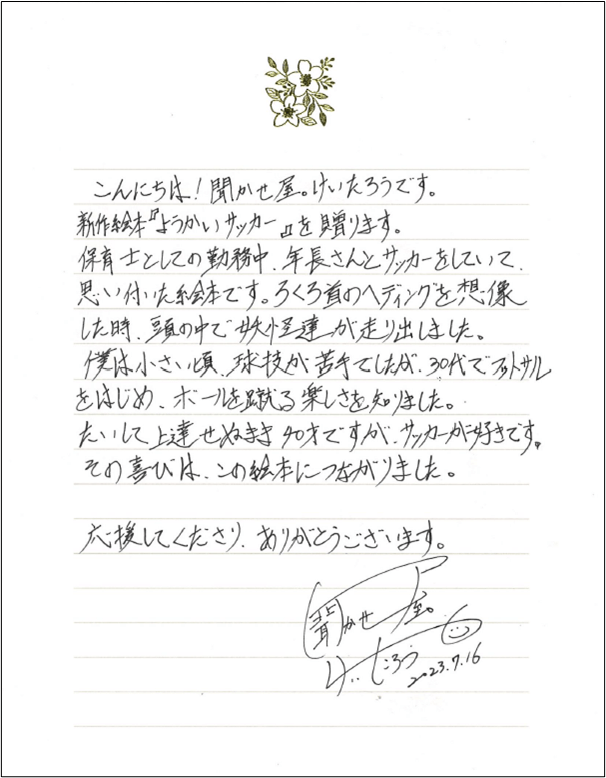 こんにちは！聞かせ屋。けいたろうです。
新作絵本『ようかいサッカー』を贈ります。
保育士としての勤務中、年長さんとサッカーをしていて、
思い付いた絵本です。ろくろ首のヘディングを想像
した時、頭の中で妖怪達が走り出しました。
僕は小さい頃、球技が苦手でしたが、30代でフットサル
をはじめ、ボールを蹴る楽しさを知りました。
たいして上達せぬまま40才ですが、サッカーが好きです。
その喜びは、この絵本につながりました。
応援してくださり、ありがとうございます。
聞かせ屋。
けいたろう
2023.7.16